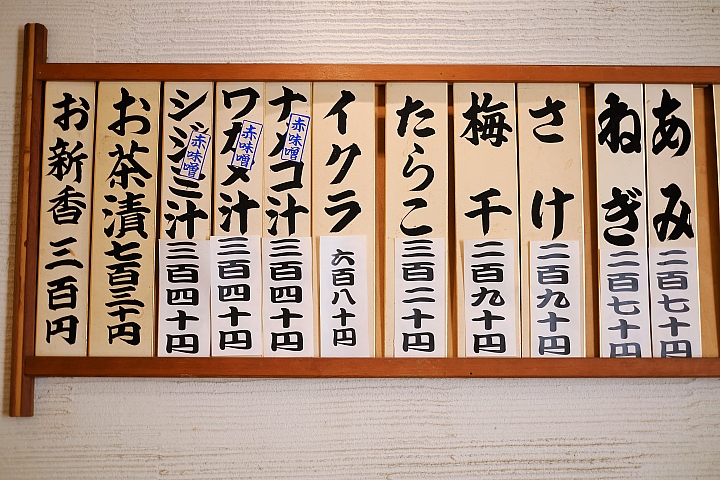 あみ 二百七十円
ねぎ 二百七十円
さけ 二百九十円
梅干 二百九十円
たらこ 三百二十円
イクラ 六百八十円
ナメコ汁 三百四十円
赤味噌
ワカメ汁 三百四十円
赤味噌
シジミ汁 三百四十円
赤味噌
お茶漬 七百三十円
お新香 三百円